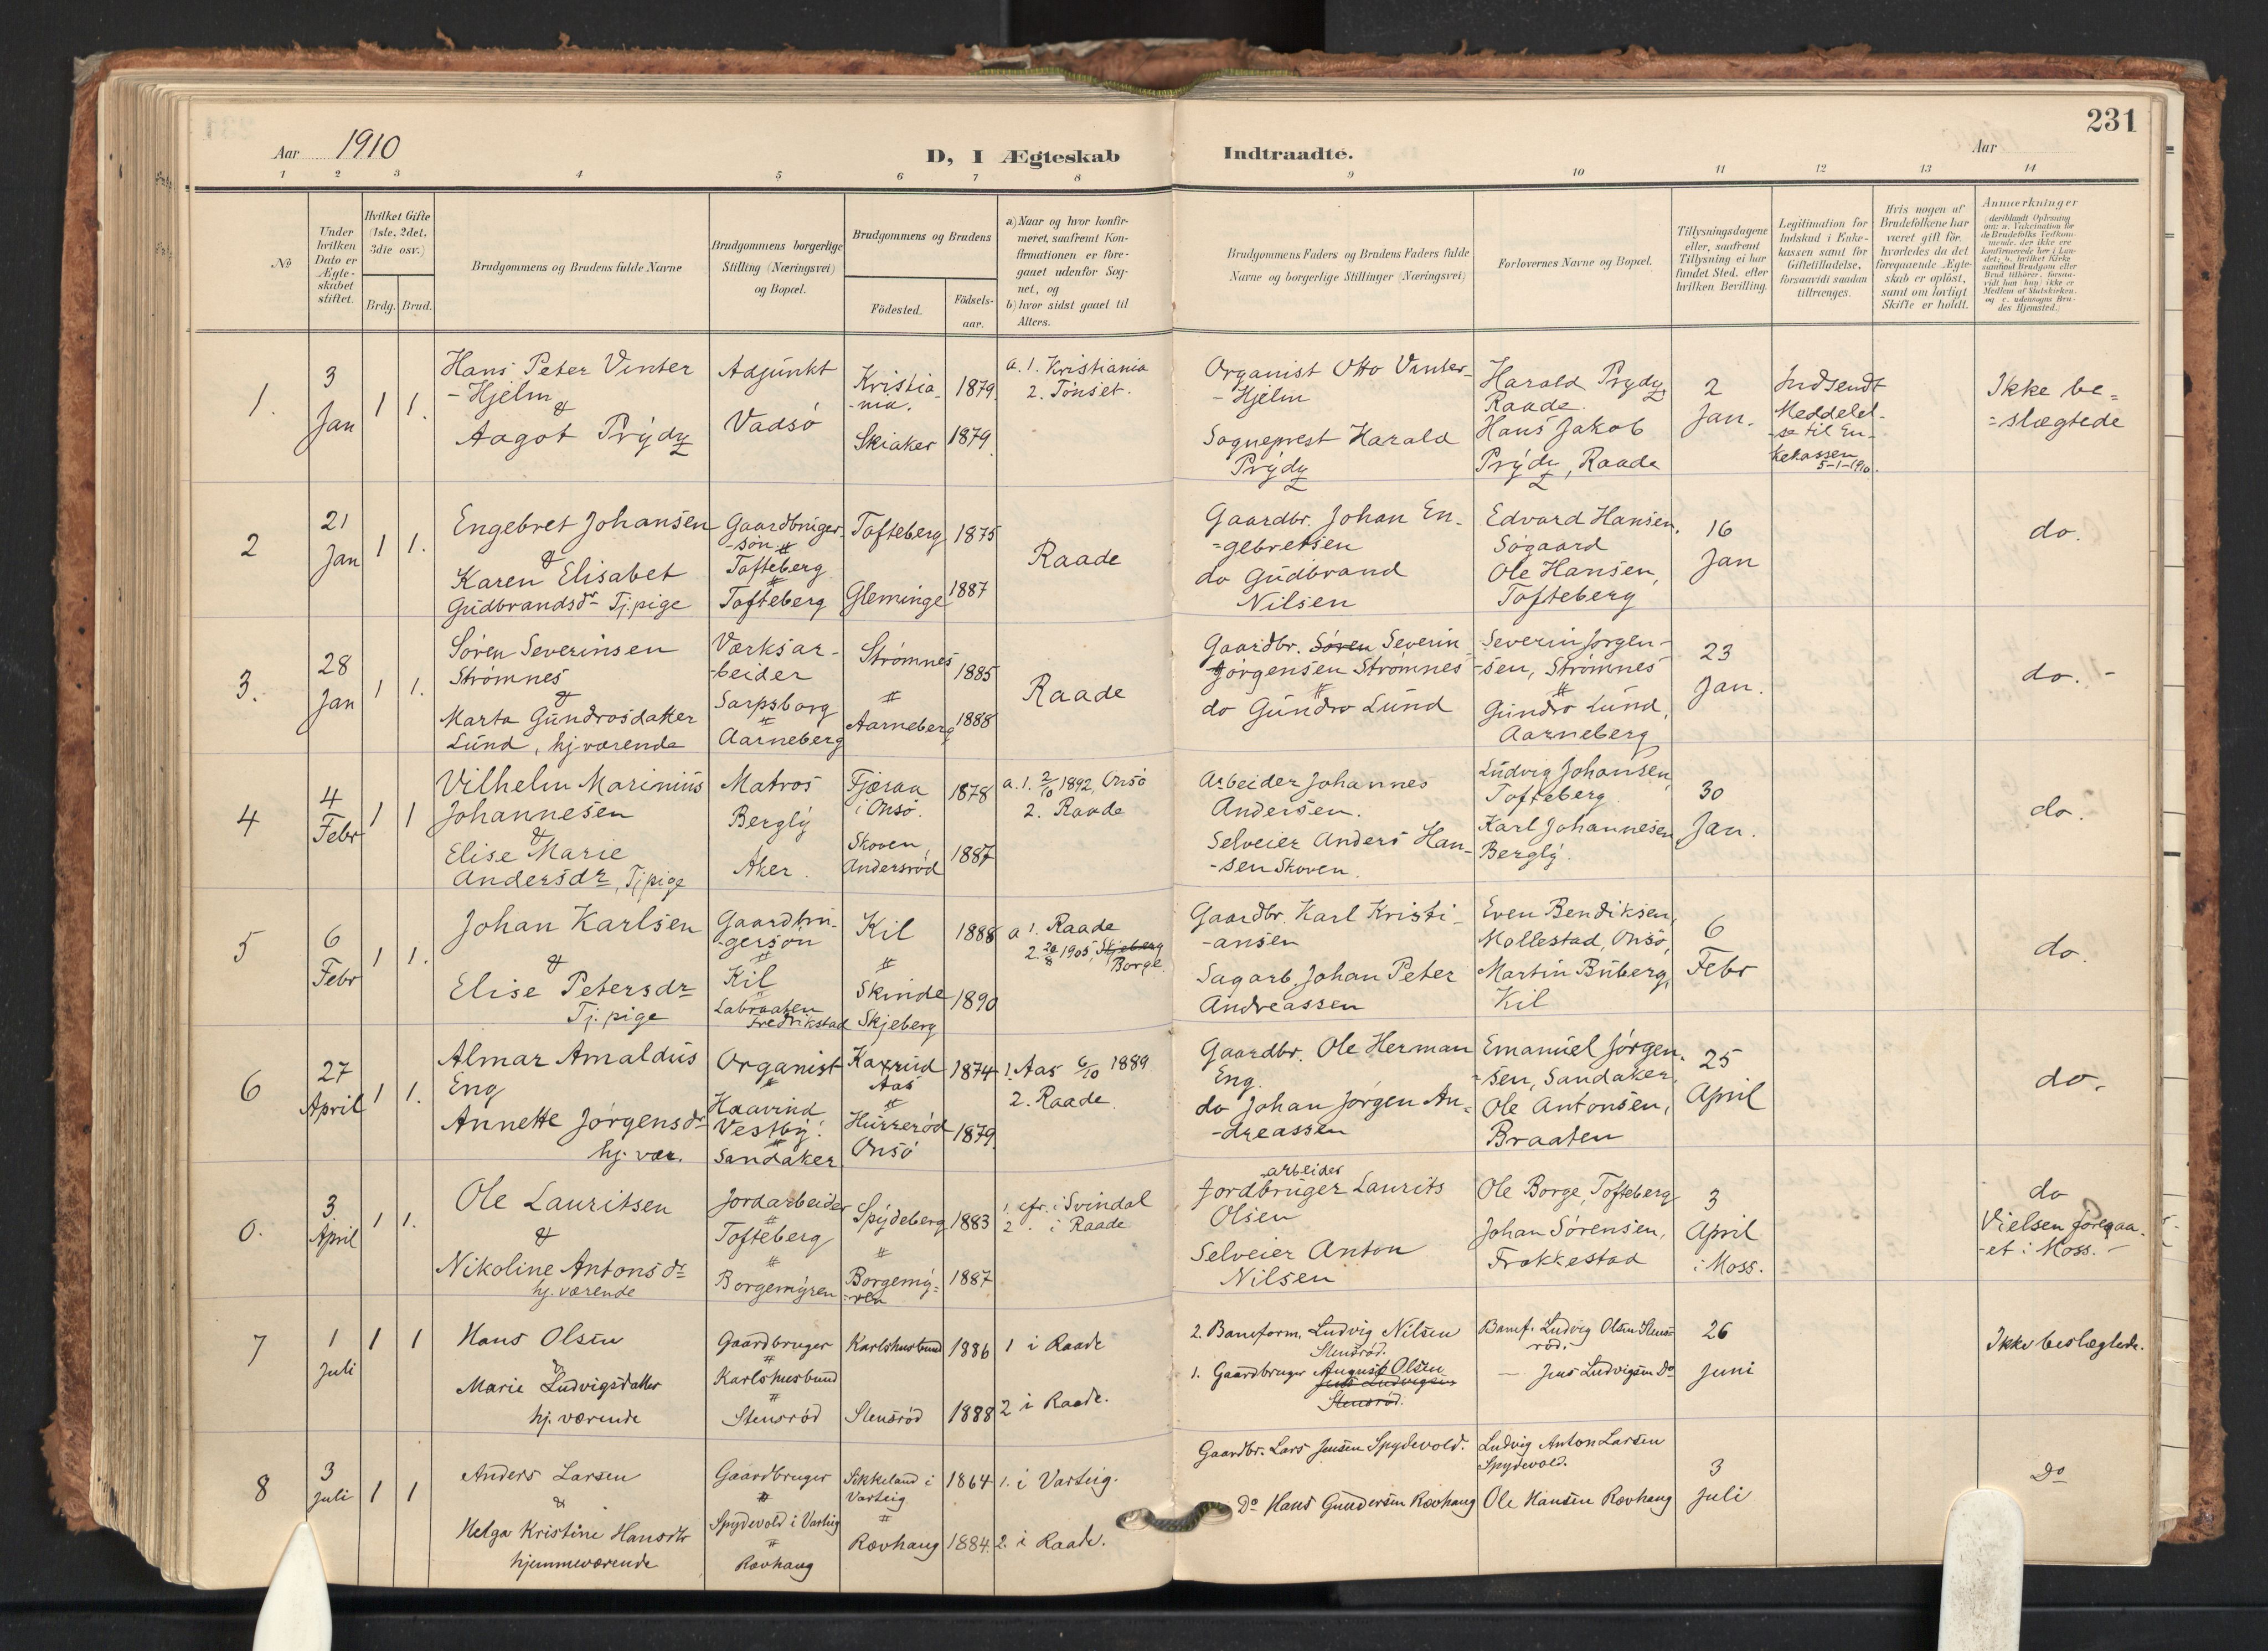 231
Aar 1910
D, I Ægteskab
Indtraadte.
Aar
1 2 3 4 5 6 7 8 9 10 11 12 13 14
No
Under
hvilken
Dato er
Ægte-
skabet
stiftet.
Hvilket Gifte
(1ste, 2det,
3die osv.)
Brdg. Brud.
Brudgommens og Brudens fulde Navne
Brudgommens borgerlige
Stilling (Næringsvei)
og Bopæl.
Brudgommens og Brudens
Födested.
Födsels-
aar.
a) Naar og hvor konfir-
meret, saafremt Kon-
firmationen er fore-
gaaet udenfor Sog-
net, og
b) hvor sidst gaaet til
Alters.
Brudgommens Faders og Brudens Faders fulde
Navne og borgerlige Stillinger (Næringsvei)
Forlovernes Navne og Bopæl.
Tillysningsdagene
eller, saafremt
Tillysning ei har
fundet Sted, efter
hvilken Bevilling.
Legitimation for
Indskud i Enke-
kassen samt for
Giftetilladelse,
forsaavidt saadan
tiltrænges.
Hvis nogen af
Brudefolkene har
været gift för,
hvorledes da det
foregaaende Ægte-
skab er oplöst,
samt om lovligt
Skifte er holdt.
Anmærkninger
(deriblandt Oplysning
om: a. Vakcination for
de Brudefolks Vedkom-
mende, der ikke ere
konfirmerede her i Lan-
det; b. hvilket Kirke-
samfund Brudgom eller
Brud tilhörer, forsaa-
vidt han (hun) ikke er
Medlem af Statskirken,
og c. udensogns Bru-
des Hjemsted.)
1.
3
Jan
1 1.
Hans Peter Vinter
-Hjelm
&
Aagot Prydz
Adjunkt
Vadsö
Kristia
-nia.
Skiaker
1879.
1879.
a. 1. Kristiania
2. Tönset.
Organist Otto Vinter-
-Hjelm
Sogneprest Harald
Prydz
Harald Prydz
Raade.
Hans Jakob
Prydz, Raade
2
Jan.
Indsendt
Meddelel-
-se til En-
kekassen
5-1-1910.
Ikke be=
=slægtede
2
21
Jan
1 1.
Engebret Johansen
&
Karen Elisabet
Gudbrandsdr Tj.pige
Gaardbruger-
-sön #
Tofteberg
#
Tofteberg
Tofteberg
Gleminge
1875
1887
Raade
Gaardbr. Johan En-
=gebretsen
do Gudbrand
Nilsen
Edvard Hansen,
Sögaard
Ole Hansen,
Tofteberg
16
Jan
do.
3.
28
Jan
1 1.
Sören Severinsen
Strömnes
&
Marta Gundrosdatter
Lund, hjværende
Værksar-
-beider
Sarpsborg
#
Aarneberg
Strömnes
#
Aarneberg
1885
1888
Raade
Gaardbr. Sören Severin
Jörgensen Strömnes
#
do Gundro Lund
Severin Jörgen-
-sen, Strömnes
#
Gundro Lund,
Aarneberg
23
Jan.
do. -
4
4
Febr
1 1
Vilhelm Marinius
Johannesen
&
Elise Marie
Andersdr, Tjpige
Matros
Bergly
Aker.
Fjæraa
i Onsö.
Skoven,
Andersröd
1878
1887
a. 1. 2/10 1892, Onsö
2. Raade
Arbeider Johannes
Andersen.
Selveier Anders Han-
-sen Skoven.
Ludvig Johansen,
Tofteberg
Karl Johannesen
Bergly.
30
Jan.
do.
5
6
Febr
1 1.
Johan Karlsen
&
Elise Petersdr
Tj. pige
Gaardbru-
-gersön
#
Kil
#
Labraaten
Fredrikstad
Kil
#
Skinde
Skjeberg
1888
1890
a 1. Raade
2. 20/8 1905, Skjeberg
Borge.
Gaardbr. Karl Kristi-
-ansen
Sagarb. Johan Peter
Andreassen
Even Bendiksen,
Mollestad, Onsö,
Martin Buberg,
Kil
6
Febr
do.
6
27
April
1 1.
Almar Amaldus
Eng
Annette Jörgensdr
hj. vær.
Organist
#
Haavind
Vestby.
#
Sandaker
Karrud
Aas
#
Hurreröd
Onsö
1874
1879.
1. Aas 6/10 1889
2. Raade.
Gaardbr. Ole Herman
Eng.
do Johan Jörgen An=
-dreassen
Emanuel Jörgen-
-sen, Sandaker.
Ole Antonsen,
Braaten
25
April
do.
0.
3
April
1 1.
Ole Lauritsen
&
Nikoline Antonsdr
hj. værende
Jordarbeider
#
Tofteberg
#
Borgemyren
Spydeberg
#
Borgemy=
=ren
1883
1887
1. cfr. i Svindal
2 . i Raade
-arbeider
Jordbruger Laurits
Olsen
Selveier Anton
Nilsen
Ole Borge, Tofteberg
Johan Sörensen,
Frokkestad
3
April
i Moss.
do
Vielsen foregaa-
-et i Moss. -
7
1
Juli
1 1
Hans Olsen
&
Marie Ludvigsdatter
hj. værende
Gaardbruger
#
Karlshusbund
#
Stensröd
Karlshusbund
Stensröd
1886
1888
1 i Raade
2 i Raade.
2. Baneform. Ludvig Nilsen
Stensröd.
1. Gaardbruger August Olsen
Jens Ludvigsen
Stensröd.
Banef. Ludvig Olsen Stens-
röd.
— Jens Ludvigsen Do
26
Juni
Ikke beslægtede.
8
3
Juli
1 1
Anders Larsen
&
Helga Kristine Hansdtr
hjemmeværende
Gaardbruger
#
Spydevold i Varteig
#
Rovhaug
Sikkeland i
Varteig
#
Rovhaug
1864
1884.
1. i Varteig.
2. i Raade.
Gaardbr. Lars Jensen Spydevold.
Do Hans Gundersen Rovhaug
Ludvig Anton Larsen
Spydevold.
Ole Hansen Rovhaug
3
Juli
Do